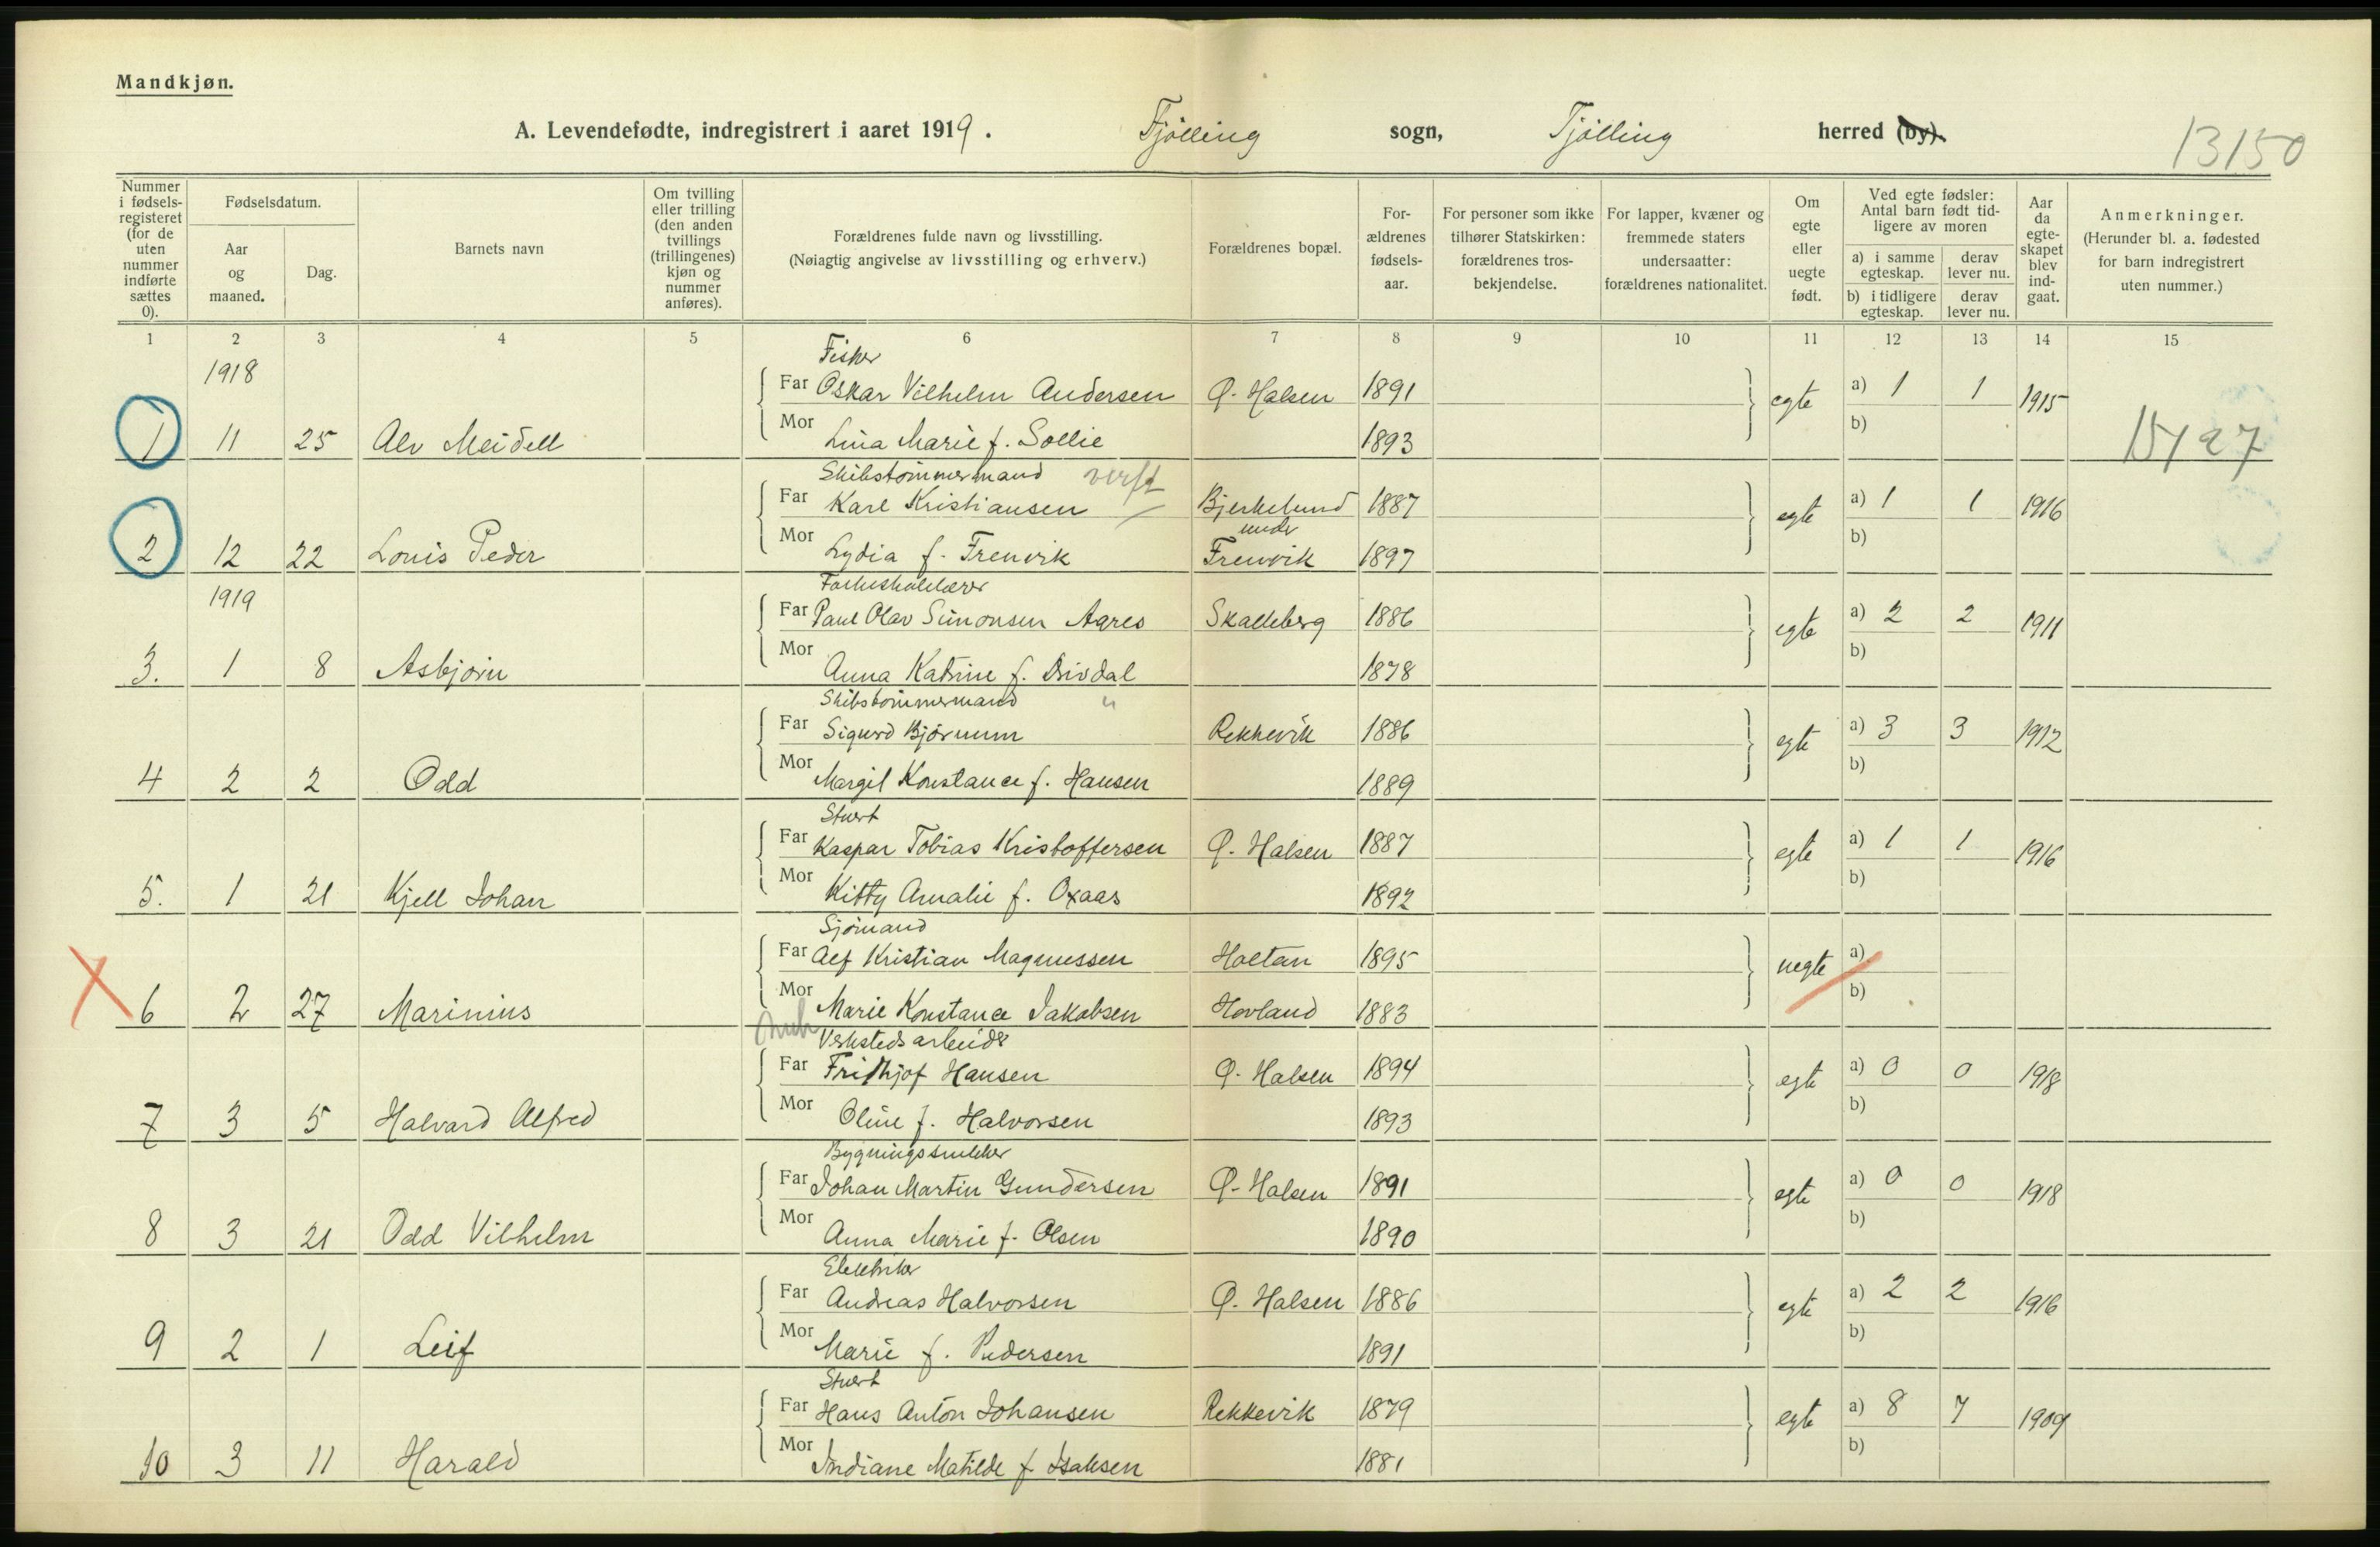 Mandkjøn.
A. Levendefødte, indregistrert i aaret 1919. Tjølling sogn, Tjølling herred (by).
13150
Nummer i fødsels-registeret (for de uten nummer indførte sættes 0).
Fødselsdatum.
Aar og maaned.
Dag.
Barnets navn
Om tvilling eller trilling (den anden tvillings (trillingenes) kjøn og nummer anføres).
Forældrenes fulde navn og livsstilling.
(Nøiagtig angivelse av livsstilling og erhverv.)
Forældrenes bopæl.
For-ældrenes fødsels-aar.
For personer som ikke tilhører Statskirken: forældrenes tros-bekjendelse.
For lapper, kvæner og fremmede staters undersaatter: forældrenes nationalitet.
Om egte eller uegte født.
Ved egte fødsler: Antal barn født tid-ligere av moren
a) i samme egteskap.
derav lever nu.
b) i tidligere egteskap.
derav lever nu.
Aar da egte-skapet blev ind-gaat.
Anmerkninger.
(Herunder bl. a. fødested for barn indregistrert uten nummer.)
1 2 3 4 5 6 7 8 9 10 11 12 13 14 15
1918
Fisker
Far Oskar Vilhelm Andersen Ø. Halsen 1891 egte a) 1 1 1915
1 11 25 Alv Meidell Mor Lina Marie f. Sollie 1893 b)
15/27
Skibstømmermand verft
Far Karl Kristiansen Bjerkelund 1887 egte a) 1 1 1916
under
2 12 22 Louis Peder Mor Lydia f. Trenvik Trenvik 1897 b)
1919
Folkeskolelærer
Far Paul Olav Simonsen Agres Skalleberg 1886 egte a) 2 2 1911
3. 1 8 Asbjørn Mor Anna Katrine f. Drivdal 1878 b)
Skibstømmermand "
Far Sigurd Bjørnum Rekkevik 1886 egte a) 3 3 1912
4 2 2 Odd Mor Margit Konstance f. Hansen 1889 b)
Stuert
Far Kaspar Tobias Kristoffersen Ø. Halsen 1887 egte a) 1 1 1916
5. 1 21 Kjell Johan Mor Kitty Amalie f. Oxaas 1892 b)
Sjømand
Far Alf Kristian Magnussen Holtan 1895 uegte a)
6 2 27 Marinius Mor Marie Konstance Jakobsen Hovland 1883 b)
Verkstedsarbeider
Far Fridhjof Hansen Ø. Halsen 1894 egte a) 0 0 1918
7 3 5 Halvard Alfred Mor Oline f. Halvorsen 1893 b)
Bygningssnekker
Far Johan Martin Gundersen Ø. Halsen 1891 egte a) 0 0 1918
8 3 21 Odd Vilhelm Mor Anna Marie f. Olsen 1890 b)
Elektriker
Far Andreas Halvorsen Ø. Halsen 1886 egte a) 2 2 1916
9 2 1 Leif Mor Marie f. Pedersen 1891 b)
Stuert
Far Hans Anton Johansen Rekkevik 1879 egte a) 8 7 1909
10 3 11 Harald Mor Indiane Matilde f. Isaksen 1881 b)